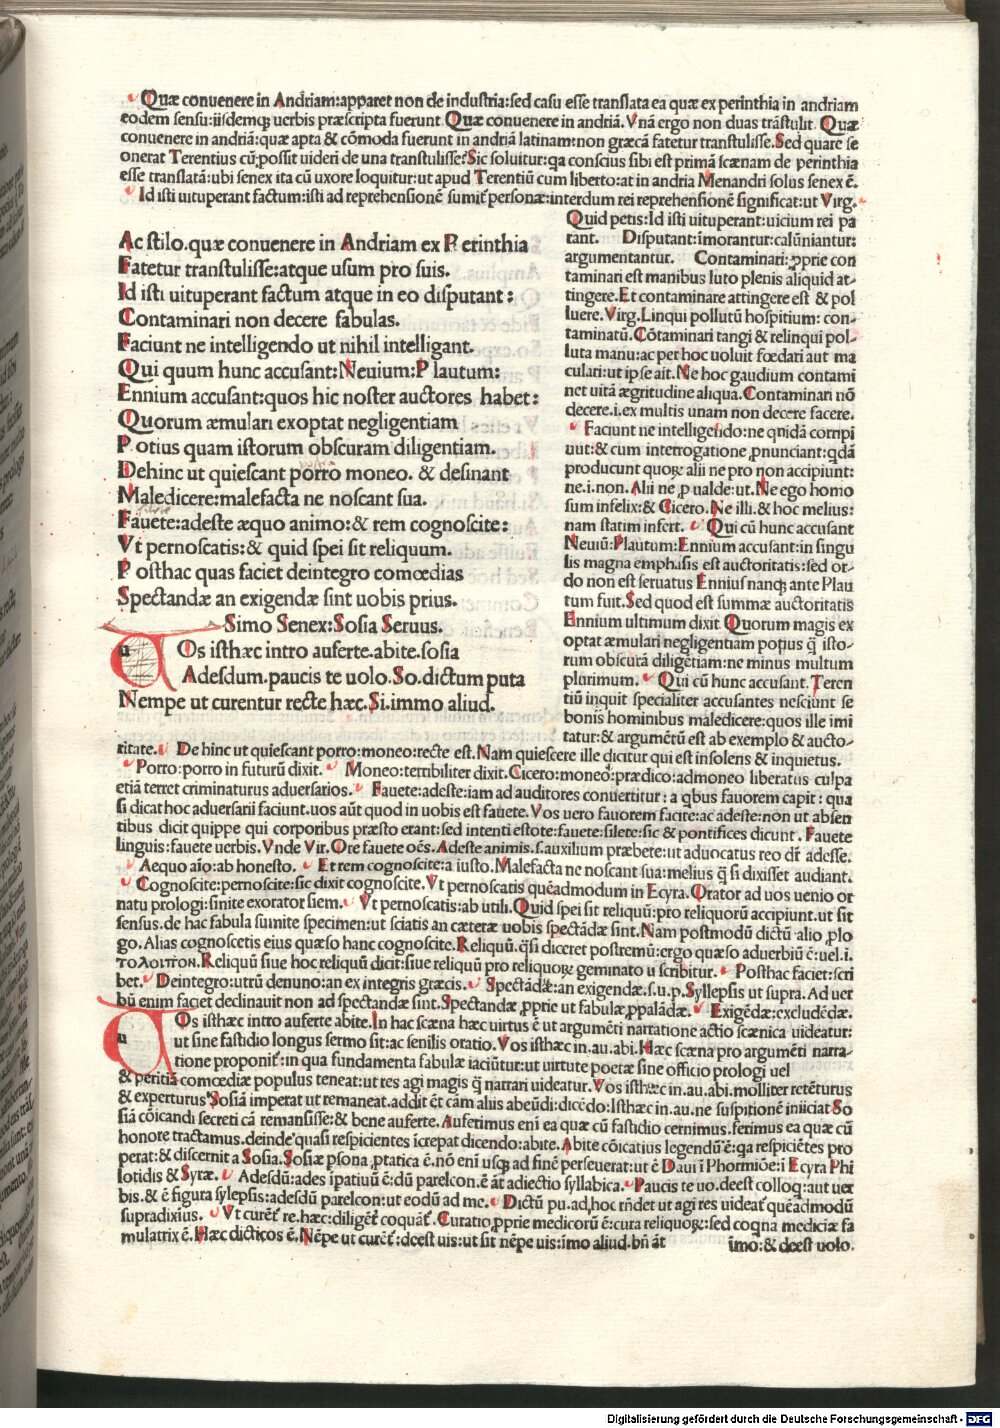 Quæ conuenere in Andriam:apparet non de industria:sed casu esse translata ea quæ ex perinthia in andriam
eodem sensu:iisdemq; uerbis præscripta fuerunt. Quæ conuenere in andriã. Vnã ergo non duas trãstulit. Quæ
conuenere in andriã:quæ apta & cõmoda fuerunt in andriã latinam:non græcã fatetur transtulisse. Sed quare se
onerat Terentius cũ;possit uideri de una transtulisse? Sic soluitur:qa conscius sibi est primã scænam de perinthia
esse translatã:ubi senex ita cũ uxore loquitur:ut apud Terentiũ cum liberto:at in andria Menandri solus senex ẽ.
Id isti uituperant factum:isti ad reprehensionẽ sumit personæ:interdum rei reprehensionẽ significat:ut Virg.
Ac stilo.quæ conuenere in Andriam ex Perinthia
Fatetur transtulisse:atque usum pro suis.
Id isti uituperant factum atque in eo disputant:
Contaminari non decere fabulas.
Faciunt ne intelligendo ut nihil intelligant.
Qui quum hunc accusant:Neuium:Plautum:
Ennium accusant:quos hic noster auctores habet:
Quorum æmulari exoptat negligentiam
Potius quam istorum obscuram diligentiam.
Dehinc ut quiescant porro moneo. & desinant
Maledicere:malefacta ne noscant sua.
Fauete:adeste æquo animo:& rem cognoscite:
Vt pernoscatis:& quid spei sit reliquum.
Posthac quas faciet deintegro comœdias
Spectandæ an exigendæ sint uobis prius.
Simo Senex:Sosia Seruus.
uOs isthæc intro auferte.abite.sosia
Adesdum.paucis te uolo.So.dictum puta
Nempe ut curentur recte hæc.Si.immo aliud.
Quid petis:Id isti uituperant:uicium rei pa
tant. Disputant:imorantur:calũniantur:
argumentantur. Contaminari:pprie con
taminari est manibus luto plenis aliquid at-
tingere.Et contaminare attingere est & pol
luere.Virg.Linqui pollutũ hospitium: con-
taminatũ. Cõtaminari tangi & relinqui pol-
luta manu:ac per hoc uoluit fœdari aut ma
culari:ut ipse ait.Ne hoc gaudium contami
net uitã ægritudine aliqua.Contaminari nõ
decere.i.ex multis unam non decere facere.
Faciunt ne intelligendo:ne qnidã corripi
uut:& cum interrogatione pnunciant:qdã
producunt quoꝝ alii ne pro non accipiunt:
ne.i.non. Alii ne p ualde:ut.Ne ego homo
sum infelix:& Cicero. Ne illi.& hoc melius:
nam statim infert. Qui cũ hunc accusant
Neuiũ:Plautum:Ennium accusant:in singu
lis magna emphasis est auctoritatis:sed or-
do non est seruatus Ennius nanq; ante Plau
tum fuit.Sed quod est summæ auctoritatis
Ennium ultimum dixit Quorum magis ex
optat æmulari negligentiam potius q̃ isto-
rum obscurã diligẽtiam:ne minus multum
plurimum. Qui cũ hunc accusant. Teren
tiũ inquit specialiter accusantes nesciunt se
bonis hominibus maledicere:quos ille imi
tatur:& argumẽtũ est ab exemplo & aucto-
ritate. De hinc ut quiescant porro:moneo:recte est.Nam quiescere ille dicitur qui est insolens & inquietus.
Porro:porro in futurũ dixit. Moneo:terribiliter dixit.Cicero:moneo:prædico:admoneo liberatus culpa
etiã terret criminaturus aduersarios. Fauete:adeste:iam ad auditores conuertitur: a qbus fauorem capit: qua
si dicat hoc aduersarii faciunt.uos aũt quod in uobis est fauete. Vos uero fauorem facite:ac adeste:non ut absen
tibus dicit quippe qui corporibus præsto erant:sed intenti estote:fauete:silete:sic & pontifices dicunt. Fauete
linguis:fauete uerbis. Vnde Vir.Ore fauete oẽs.Adeste animis.s.auxilium præbete:ut aduocatus reo dr̃ adesse.
Aequo aĩo:ab honesto. Et rem cognoscite:a iusto.Malefacta ne noscant sua:melius q̃ si dixisset audiant.
Cognoscite:pernoscite:sic dixit cognoscite.Vt pernoscatis quẽadmodum in Ecyra.Orator ad uos uenio or
natu prologi:sinite exorator siem. Vt pernoscatis:ab utili.Quid spei sit reliquũ:pro reliquorũ accipiunt.ut sit
sensus.de hac fabula sumite specimen:ut sciatis an cæteræ uobis spectãdæ sint.Nam postmodũ dictũ alio plo
go.Alias cognoscetis eius quæso hanc cognoscite.Reliquũ.q̃si diceret postremũ:ergo quæso aduerbiũ ẽ:uel.i.
τολοιπον.Reliquũ siue hoc reliquũ dicit:siue reliquũ pro reliquoꝝ geminato u scribitur. Posthac faciet:scri
bet. Deintegro:utrũ denuno:an ex integris græcis. Spectãdæ:an exigendæ.s.u.p.Syllepsis ut supra.Ad uer
bũ enim faciet declinauit non ad spectandæ sint.Spectandæ pprie ut fabulæ ppalãdæ. Exigẽdæ:excludẽdæ.
uOs isthæc intro auferte abite.In hac scæna hæc uirtus ẽ ut argumẽti narratione actio scænica uideatur:
ut sine fastidio longus sermo sit:ac senilis oratio.Vos isthæc in.au.abi.Hæc scæna pro argumẽti narra-
tione proponit:in qua fundamenta fabulæ iaciũtur:ut uirtute poetæ sine officio prologi uel
& peritiã comœdiæ populus teneat:ut res agi magis q̃ narrari uideatur.Vos isthæc in.au.abi.molliter retẽturus
& experturus Sosiã imperat ut remaneat.addit ẽt cãm aliis abeũdi:dicẽdo:Isthæc in.au.ne suspitionẽ iniiciat So
siã cõicandi secreti cã remansisse:& bene auferte.Auferimus eni ea quæ cũ fastidio cernimus.ferimus ea quæ cũ
honore tractamus.deinde quasi respicientes icrepat dicendo:abite.Abite cõicatius legendũ ẽ:qa respiciẽtes pro
perat:& discernit a Sosia.Sosiæ psona ptatica ẽ.nõ enĩ usq; ad finẽ perseuerat:ut ẽ Daui ĩ Phormiõe:ĩ Ecyra Phi
lotidis & Syræ. Adesdũ:ades ĩpatiuũ ẽ:dũ parelcon.ẽ ãt adiectio syllabica. Paucis te uo.deest colloq:aut uer
bis.& ẽ figura sylepsis:adesdũ parelcon:ut eodũ ad me. Dictũ pu.ad hoc rñdet ut agi res uideat quẽadmodũ
supradixius. Vt curẽt re.hæc:diligẽt coquãt.Curatio pprie medicorũ ẽ:cura reliquoꝝ:sed coqna mediciæ fa
mulatrix ẽ.Hæc dicticos ẽ.Nẽpe ut curẽt:deest uis:ut sit nẽpe uis:ĩmo aliud.bñ ãt ĩmo:& deest uolo.
Digitalisierung gefördert durch die Deutsche Forschungsgemeinschaft - DFG